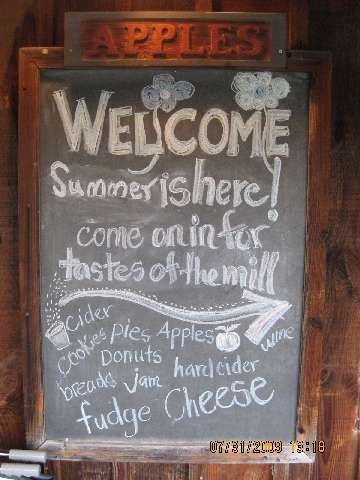 APPLES
WELCOME
Summer is here!
come on in for
tastes of the mill
Cider
Cookies Pies Apples wine
Donuts
breads jam hard cider
fudge Cheese
07/31/2009 19:18